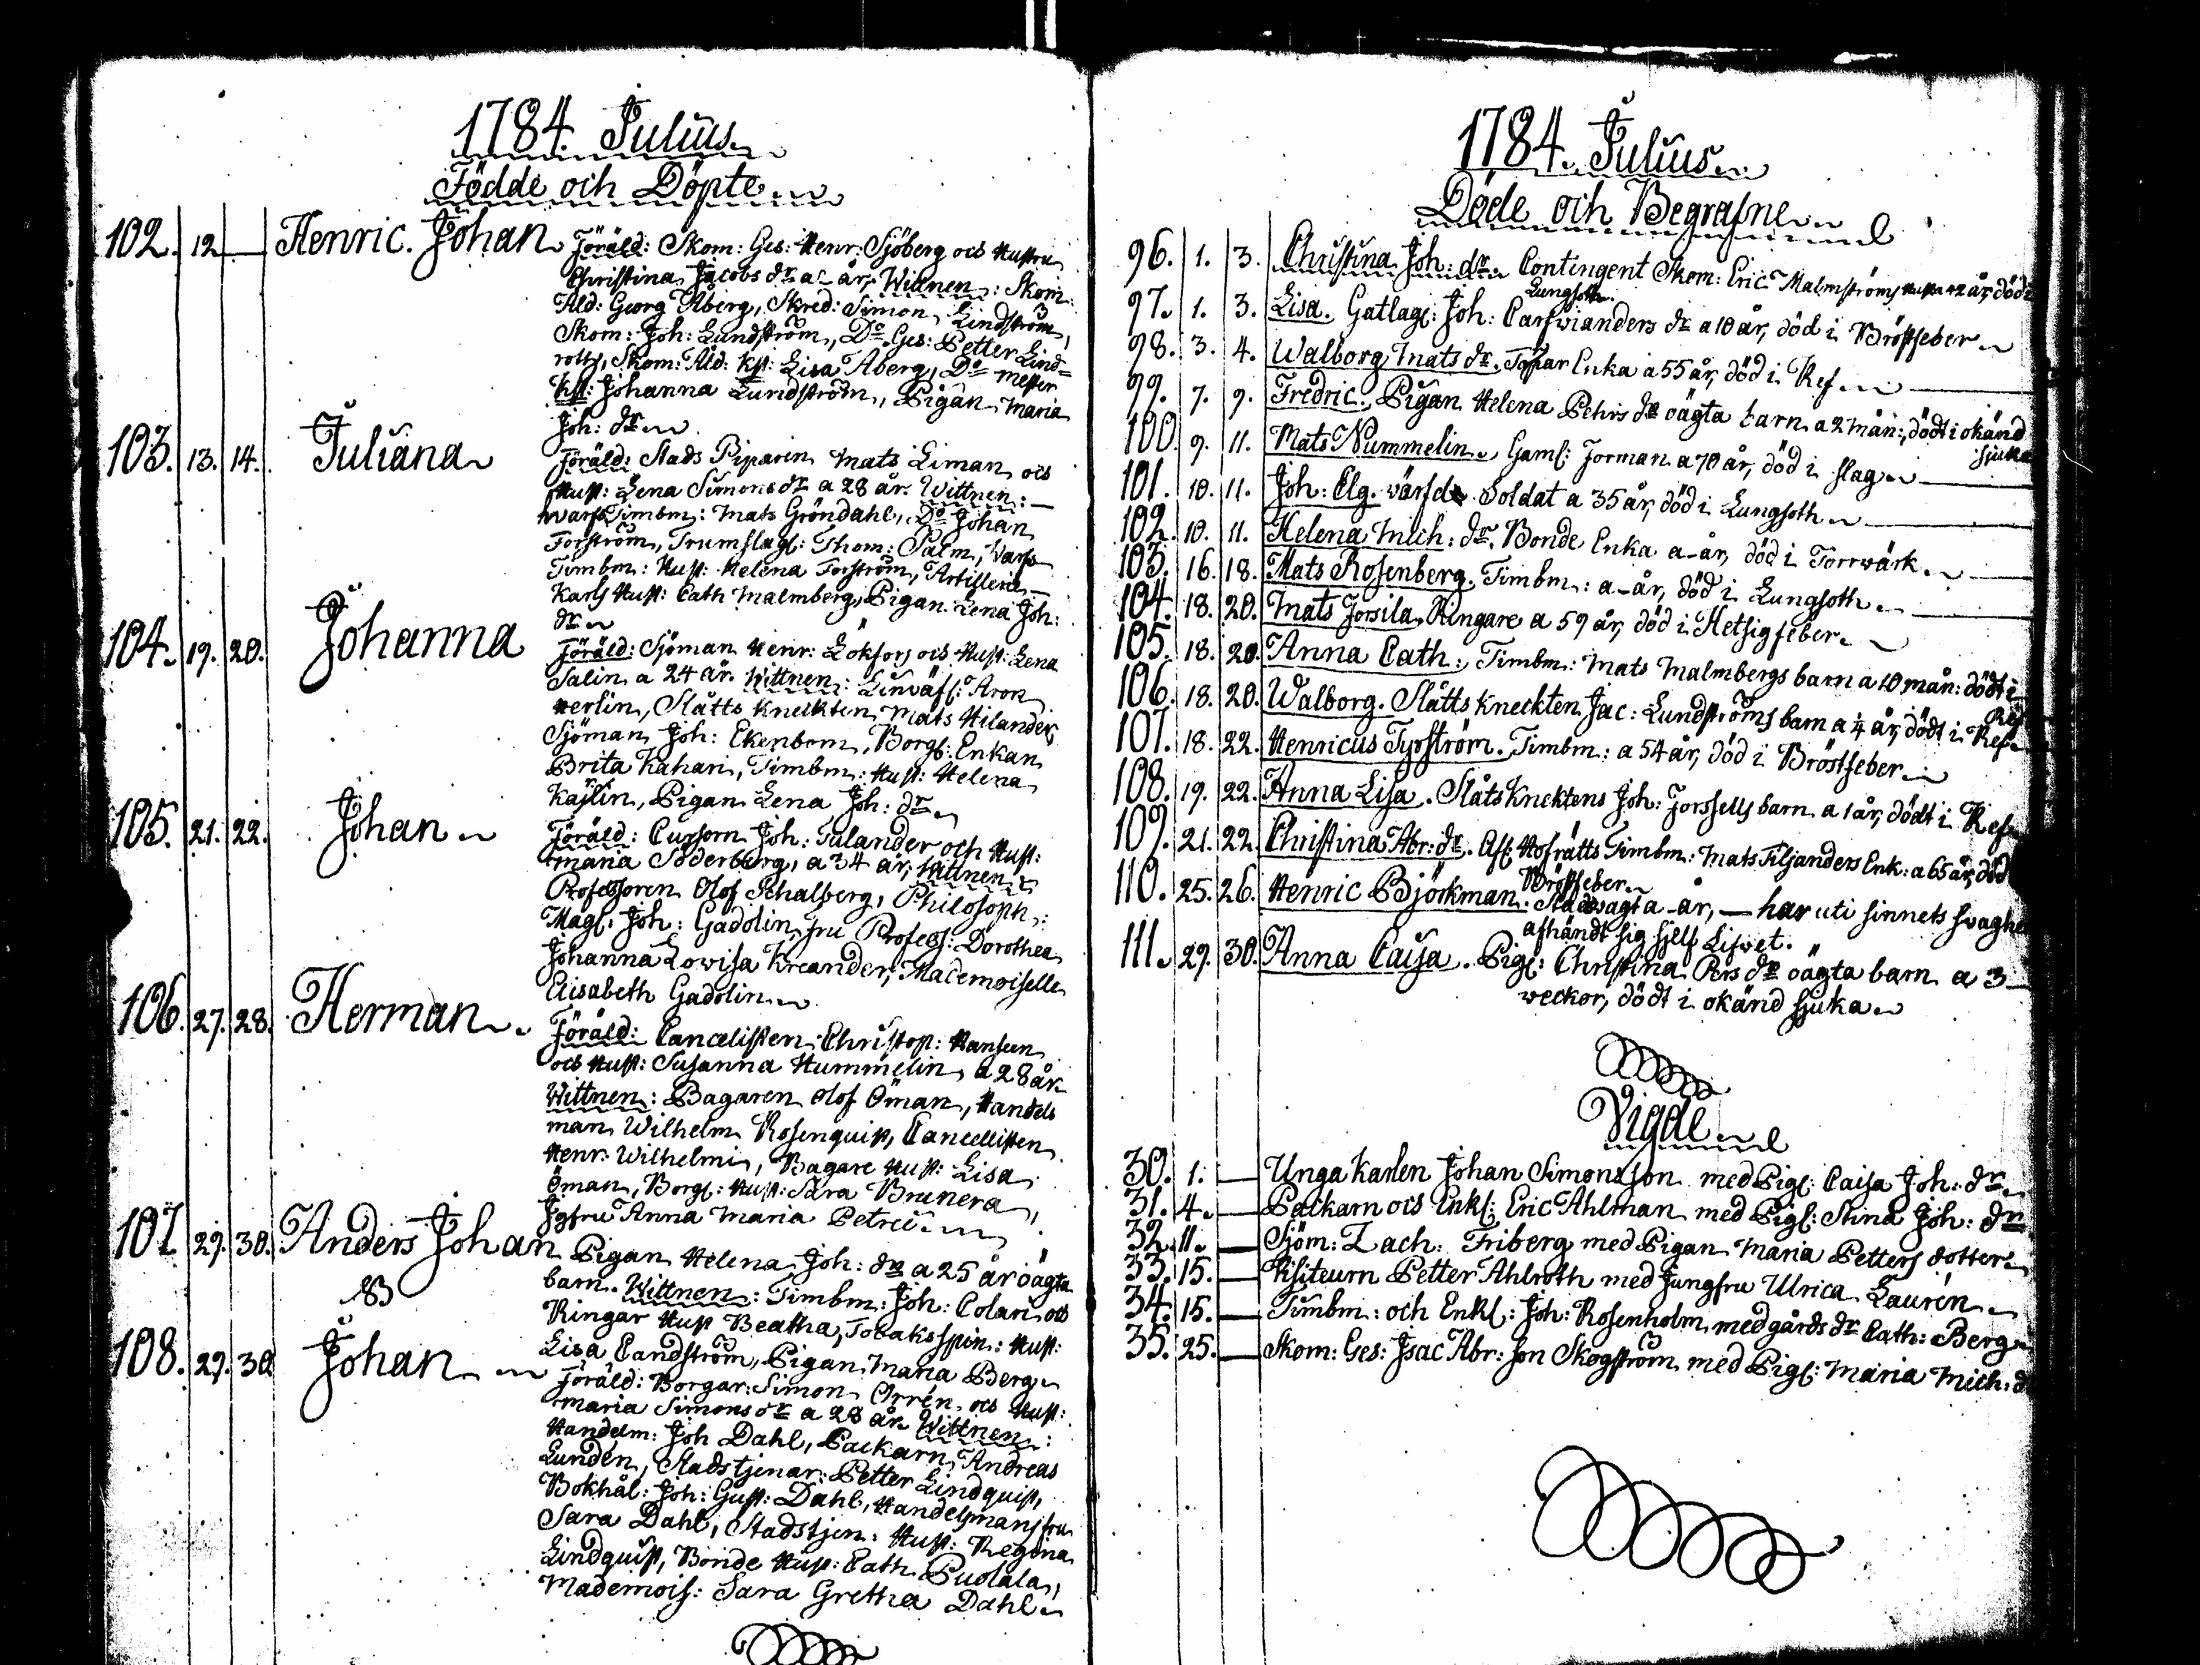 1784. Julius
Födde och Döpte
102. 12 — Henric. Johan Föräld: Skom: Ges: Henr: Sjöberg och Hustru
Christina Jacobs dr a - år, Wittnen: Skom:
Åld: Georg Åberg, Skred: Simon Lindström,
Skom: Joh: Lundström, Do Ges: Petter Lind-
roth, Skom: Åld: Kst: Lisa Åberg, Do mester
Kst: Johanna Lundström, Pigan Maria
Joh: dr
103. 13. 14. Juliana Föräld: Stads Piparen Mats Liman och
Hust: Lena Simons dr a 28 år. Wittnen: —
Warfs Timbm: Mats Gröndahl, Do Johan
Forström, Trumslag: Thom: Palm, Warfs
Timbm: Hust: Helena Forström, Artilleri
Karls Hust: Cath Malmberg, Pigan Lena Joh:
dr
104. 19. 20. Johanna Föräld: Sjöman Henr: Löfors och Hust: Lena
Salin a 24 år. Wittnen: Linväf: Aron
Merlin, Slåtts kneckten Mats Hilander,
Sjöman Joh: Ekenbom, Borg: Enkan
Brita Kahari, Timbm: Hust: Helena
Kajlin, Pigan Lena Joh: dr
105. 21. 22. Johan Föräld: Cursorn Joh: Tulander och Hust:
Maria Söderberg, a 34 år, Wittnen
Professoren Olof Schalberg, Philosoph:
Mag: Joh: Gadolin, fru Profess: Dorothea
Johanna Lowisa Kreander, Mademoiselle
Elisabeth Gadolin
106. 27. 28. Herman Föräld: Cancelisten Christop: Hanseen
och Hust: Susanna Hummelin, a 28 år
Wittnen: Bagaren Olof Öman, Handels
man Wilhelm Rosenquist, Cancellisten
Henr: Wilhelmi, Bagare Hust: Lisa
Öman, Borg: Hust: Sara Brunera,
Jgfru Anna Maria Petrei
107 29. 30. Anders Johan Pigan Helena Joh: dr a 25 år oägta
barn. Wittnen: Timbm: Joh: Colari och
Ringar Hust Beatha, Tobaksspin: Hust:
Lisa Candström, Pigan Maria Berg
108. 29. 30 Johan Föräld: Borgar: Simon Orrén och Hust:
Maria Simons dr a 28 år Wittnen:
Handelm: Joh Dahl, Packarn Andreas
Lundén, Stadstjenar: Petter Lindquist,
Bokhål: Joh: Gust: Dahl, Handelsmans fru
Sara Dahl, Stadstjen: Hust: Regina
Lindquist, Bonde Hust: Cath Puolala,
Mademois: Sara Gretha Dahl
1784. Julius
Döde och Begrafne
96. 1. 3. Christina Joh: dr Contingent Skom: Eric Malmströms Hustru 42 år, död i
Lungsoth
97. 1. 3. Lisa. Gatlag: Joh: Carlwianders dr a 10 år, död i Bröstfeber
98. 3. 4. Walborg Mats dr. Enka a 55 år, död i Ref
99. 7. 9. Fredric. Pigan Helena Pehrs dr oägta barn a 2 mån:, dödt i okänd
sjuka
100. 9. 11. Mats Nummelin. Gaml: Forman a 70 år, död i slag
101. 10. 11. Joh: Elg. Soldat a 35 år, död i Lungsoth
102. 10. 11. Helena Mich: dr. Bonde Enka a - år, död i Torrwärk
103. 16. 18. Mats Rosenberg. Timbm: a - år, död i Lungsoth
104. 18. 20. Mats Jossila. Ringare a 59 år, död i Hetsigfeber
105. 18. 20. Anna Cath: Timbm: Mats Malmbergs barn a 10 mån: dödt i
Ref
106. 18. 20. Walborg. Slåttskneckten Jac: Lundströms barn a ¼ år, dödt i Ref
107. 18. 22. Henricus Tyrström. Timbm: a 54 år, död i Bröstfeber
108. 19. 22. Anna Lisa. Slåtsknektens Joh: Forssells barn a 1 år, dödt i Ref
109. 21. 22. Christina Abr: dr. Afl: Hofrätts Timbm: Mats Filjanders Enk: a 65 år, död
Bröstfeber
110. 25. 26. Henric Björkman. Stadswagt a - år, — har uti sinnets svaghet
afhändt sig sjelf Lifwet.
111. 29. 30. Anna Caisa. Pig: Christina Pers dr oägta barn a 3
weckor, dödt i okänd sjuka
Vigde
30. 1. — Unga karlen Johan Simonsson med Pig: Caisa Joh: dr
31. 4. — Packarn och Enkl: Eric Ahlman med Pig: Stina Joh: dr
32. 11. — Sjöm: Zach: Friberg med Pigan Maria Petters dotter
33. 15. — Visiteurn Petter Ahlroth med Jungfru Ulrica Laurén
34. 15. — Timbm: och Enkl: Joh: Rosenholm med gårds dr Cath: Berg
35. 25. — Skom: Ges: Isac Abr: son Skogström med Pig: Maria Mich: d